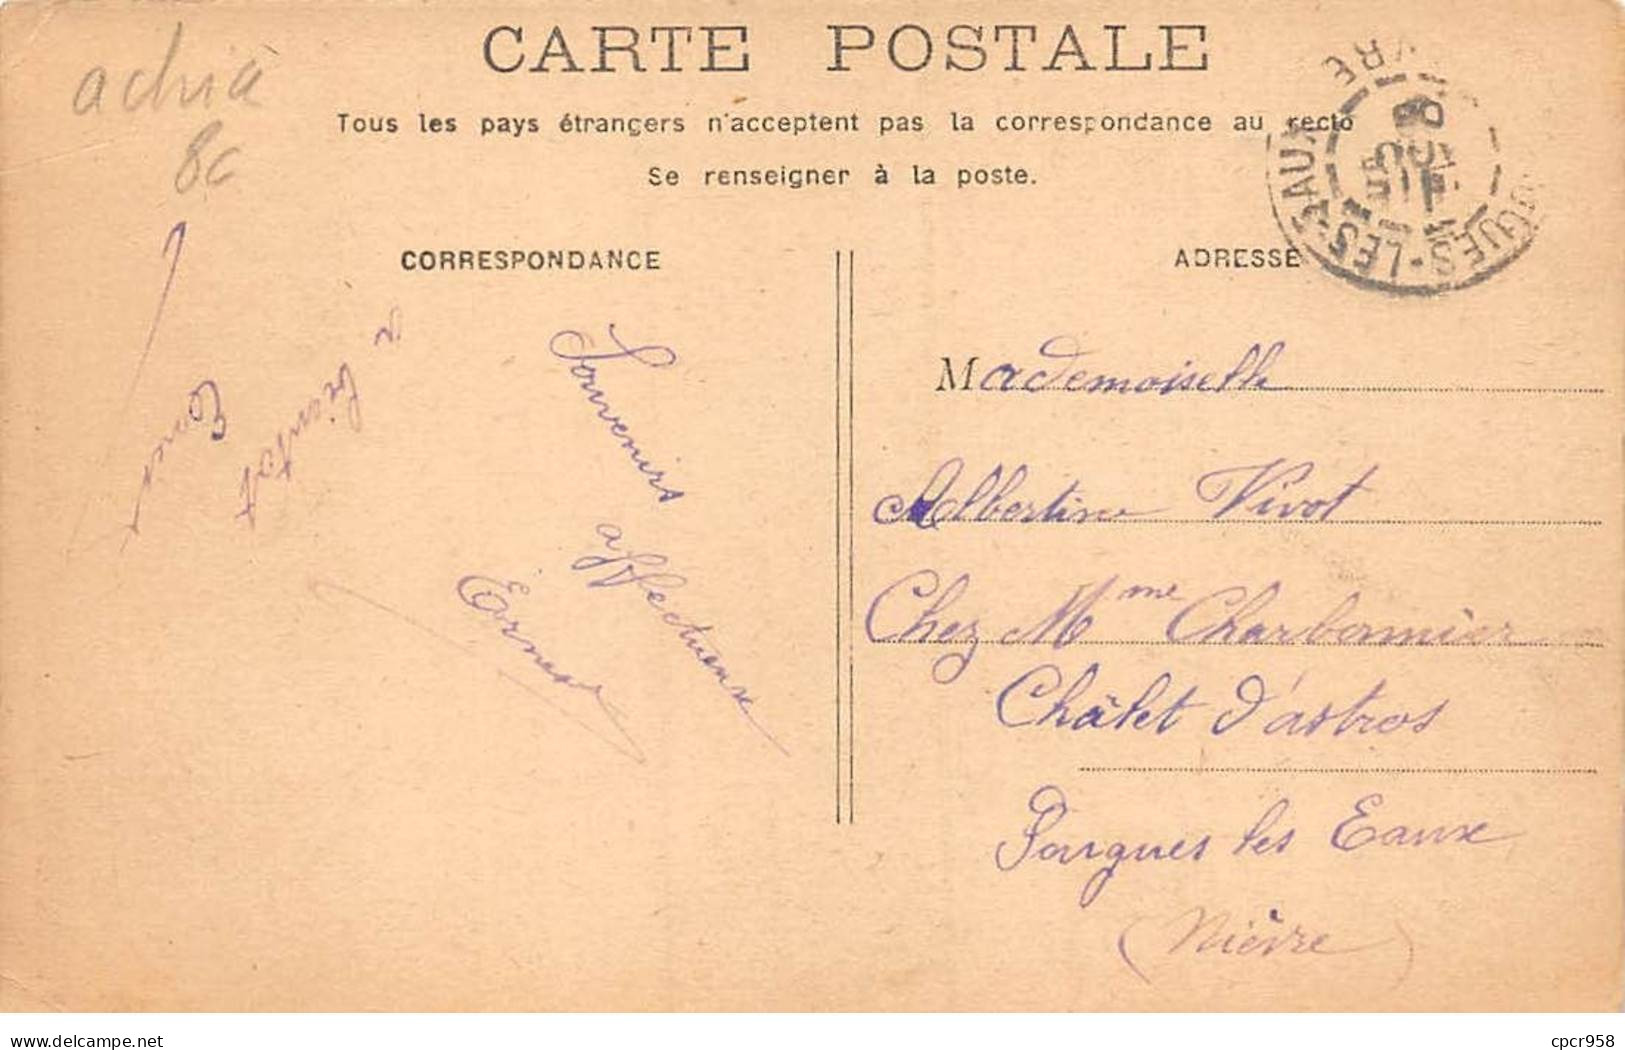 CARTE POSTALE
Tous les pays étrangers n'acceptent pas la correspondance au recto
Se renseigner à la poste.
8c
CORRESPONDANCE
ADRESSE
GUES-LES-EAUX
Souvenirs
affectueux
Ernest
a
bientot
Mademoiselle
Albertine Vivot
Chez Mme Charbonnier
Châlet d'astros
Pougues les Eaux
(Nièvre)
www.delcampe.net
cpcr958